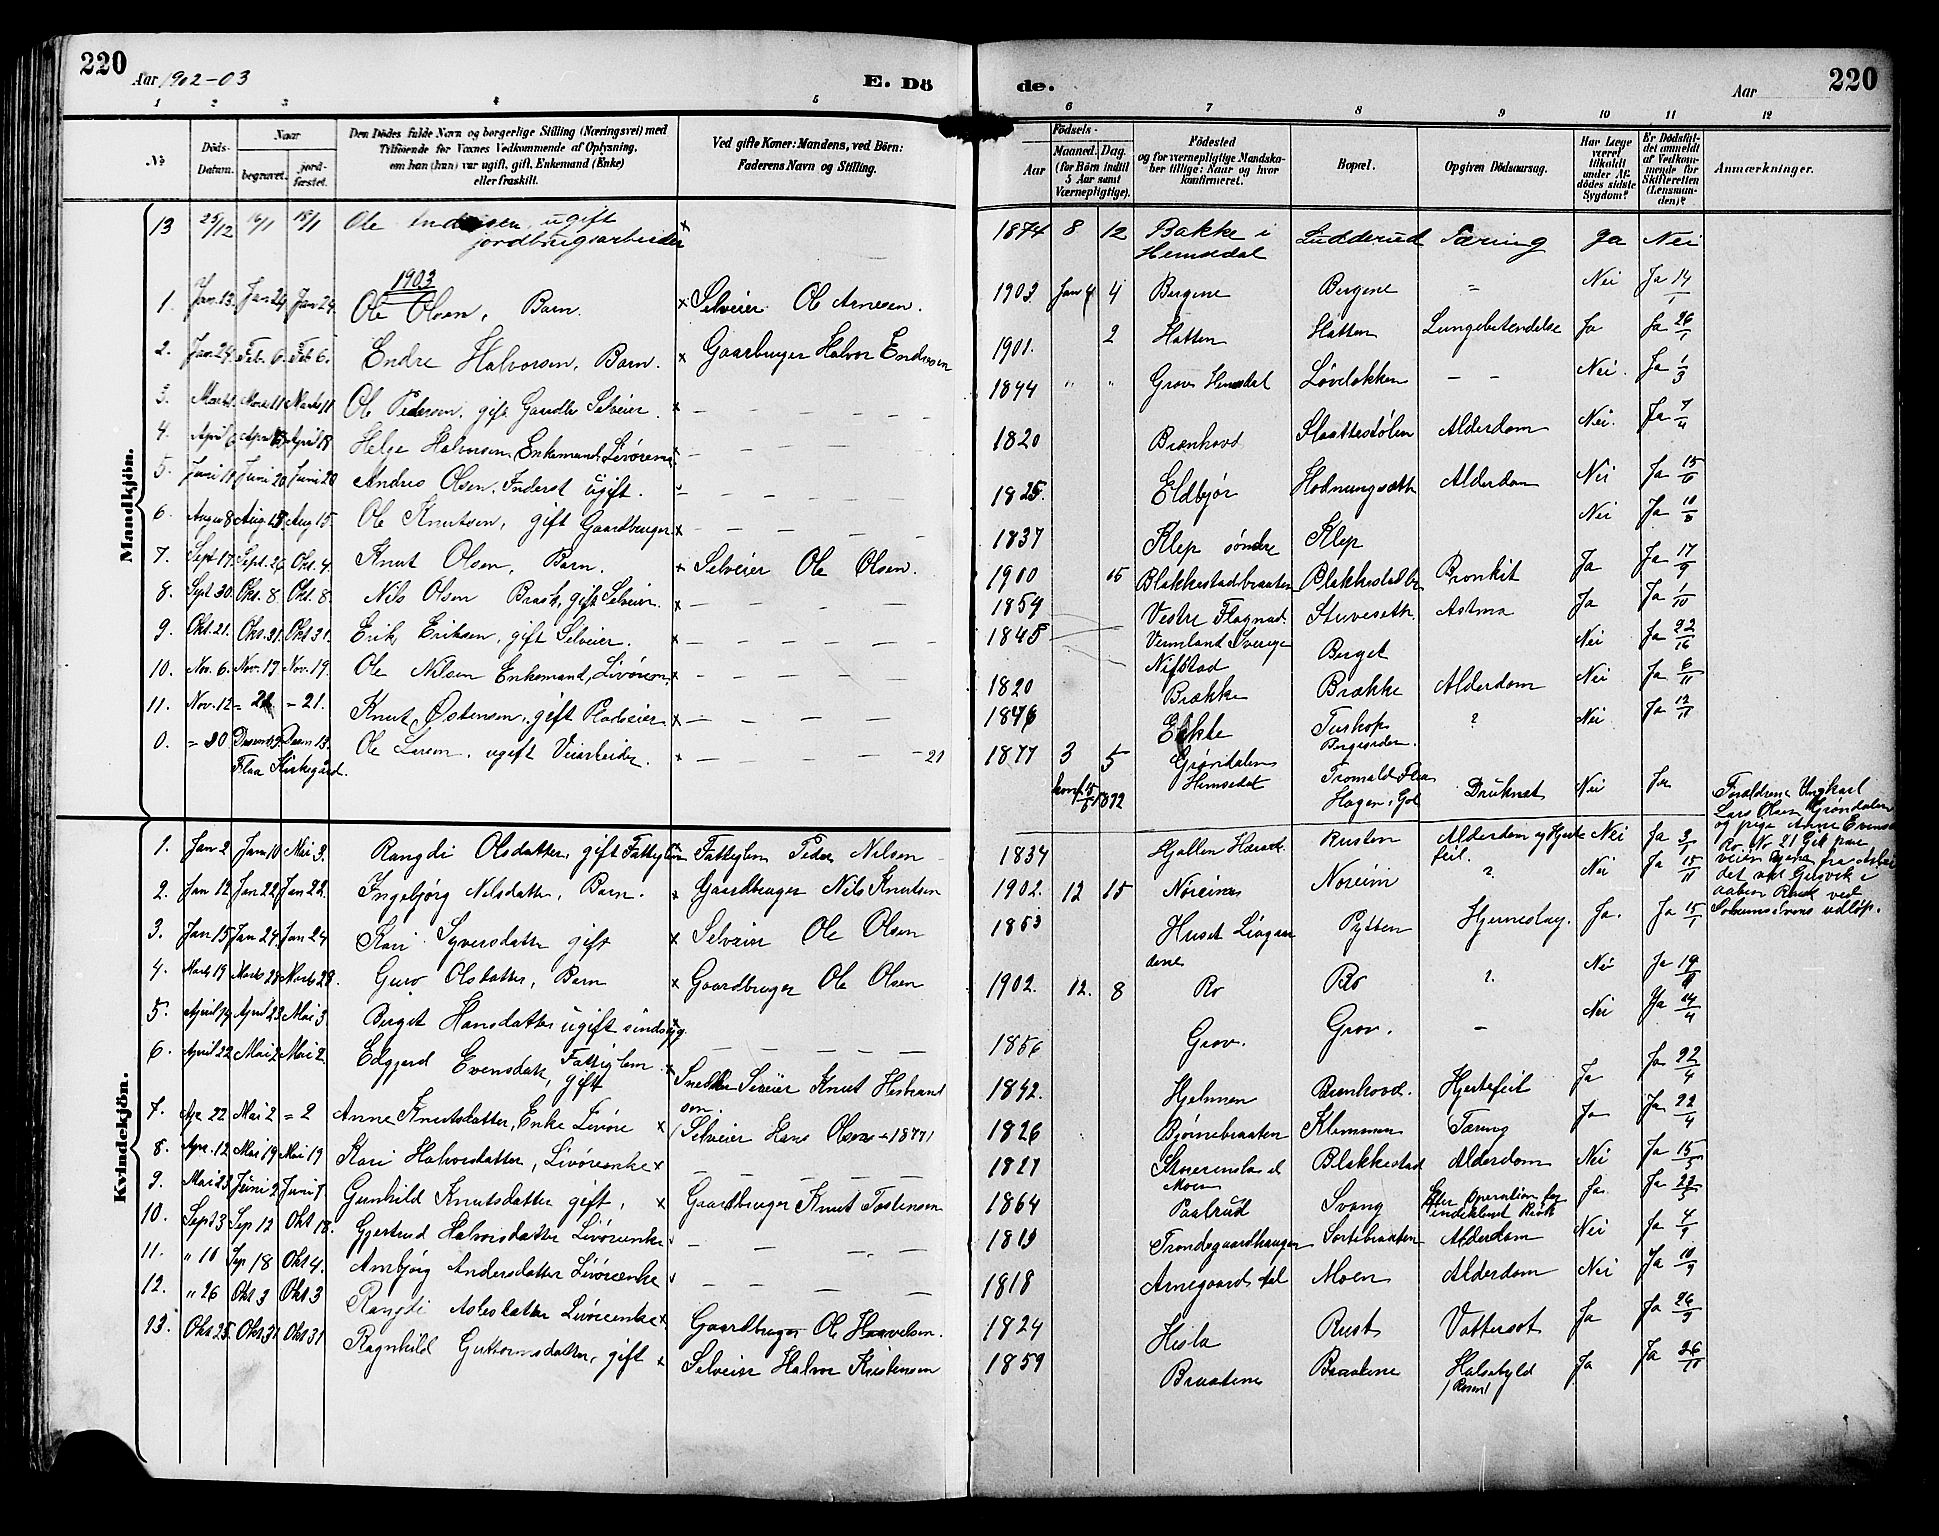 220 Aar 1902-03 E. Dö de. Aar 220
1 2 3 4 5 6 7 8 9 10 11 12
No Döds-Datum. Naar begravet. jordfæstet. Den Dödes fulde Navn og borgerlige Stilling (Næringsvei) med Tilföiende for Voxnes Vedkommende af Oplysning, om han (hun) var ugift, gift, Enkemand (Enke) eller fraskilt. Ved gifte Koner: Mandens, ved Börn: Faderens Navn og Stilling.
Födsels- Aar Maaned. Dag. (for Börn indtil 5 Aar samt Værnepligtige). Födested og for værnepligtige Mandskaber tillige: Naar og hvor konfirmeret. Bopæl. Opgiven Dödsaarsag. Har Læge været tilkaldt under Afdödes sidste Sygdom? Er Dödsfaldet anmeldt af Vedkommende for Skifteretten (Lensmanden)? Anmærkninger.
Mandkjön.
13 25/12 16/1 18/1 Ole ugift jordbrugsarbeider x 1874 8 12 Bakke i Hemsedal Ludderud Tæring Ja Nei
1903
1. Jan 13. Jan 24 Jan 24. Ole Olsen, Barn x Selveier Ole Arnesen. 1903 Jan 4 Bergene Bergene " Nei Ja 14/1
2. Jan. 24. Feb. 6. Feb 6. Endre Halvorsen, Barn. x Gaarbruger Halvor Endresen 1901. 2 Hatten Hatten Lungebetendelse Ja Ja 26/1
3. Marts 1. Marts 11 Marts 11 Ole Pedersen, gift Selveier. x 1844 " " Grov Hemsedal Løvelokken - - Nei. Ja 1/3
4. April 6. April 18 April 18 Helge Halvorsen Enkemand, Livørem. 1820 Brenhovd Slaattestølen Alderdom Nei. Ja 7/4
5. Juni 14 Juni 20 Juni 20 Andres Olsen, Inderst ugift. 1825. Eldbjør Alderdom Nei Ja 15/6
6. August 8 Aug. 15 Aug 15. Ole Knutsen, gift Gaardbruger. x 1837 Klep søndre Klep Nei Ja 10/8
7. Sept 17. Sept. 26 Okt. 4. Knut Olsen, Barn. x Selveier Ole Olsen. 1900 15 Blakkestadbraaten Blakkestadbr Bronkit Ja Ja 17/9
8. Sept 30. Okt. 8. Okt. 8. Nils Olsen gift Selveier. x 1854 Vestre Stuveseth Astma Ja Ja 1/10
9. Okt. 21. Okt. 31. Okt 31. Erik Eriksen, gift Selveier. x 1845 Vermland Sverige Berget Nei Ja 22/10
10. Nov. 6. Nov. 17 Nov. 19. Ole Nilsen Enkemand, Livørem. x 1820 Nifstad Brække Brække Alderdom Nei Ja 6/11
11. Nov. 12 = 21 - 21. Knut Østensen, gift Pladseier x 1846 Ekke Tushop ? Nei Ja 12/11
0. = 30 Desemb 13. Desem 13. Ole ugift Veiarbeider. x - 21 1877 3 5 Grøndalen Hemsedal Hagen i Gol Druknet Nei Ja
Flaa Kirkegård. konf. 1892
Kvindekjön.
1. Jan 2 Jan 10 Mai 3. Rangdi Olsdatter, gift Fattiglem Fattiglem Peder Nilsen 1834 Rusten Alderdom og Hjerte feil. Nei Ja 2/1
2. Jan 12 Jan 22 Jan 22. Ingebjørg Nilsdatter, Barn. x Gaardbruger Nils Knutsen 1902. 12 15 Noreim Noreim ? Nei Ja 15/11
3. Jan 15 Jan 24 Jan 24 Kari Syversdatter gift x Selveier Ole Olsen 1853 Huset Pytten Hjerneslag. Ja. Ja 15/1
4. Marts 19 Marts 28 Marts 28. Guro Olsdatter, Barn x Gaardbruger Ole Olsen 1902. 12. 8 Ro Ro ? Nei Ja 19/
5. April 14 April 23 Mai 3 Berget Hansdatter ugift sindsyg. 1856 Grov. Grov. - Nei Ja 14/4
6. April 22 Mai 2 Mai 2. Edgjerd Evensdatt, Fattiglem gift x Knut Hesbrand sen. 1842. Hjelmen Brenhovd. Hjertefeil Ja Ja 22/4
7. Apr. 22 Mai 2 = 2 Anne Knutsdatter, Enke Livøre x (Selveier Hans Olsen - 1877) 1826 Bjørnebraaten Klemmen Tæring Ja Ja 22/4
8. Apr. 12 Mai 19 Mai 19 Kari Halvorsdatter, Livøreenke x 1827 Blakkestad Alderdom Nei Ja 15/5
9. Mai 23 Juni 2 Juni 7 Gunhild Knutsdatter gift, x Gaardbruger Knut Tostensen 1864 Paalrud Svang Efter Operation for indeklemt Brok Ja. Ja 23/5
10. Sept 3 Sep 12 Okt 18. Gjertrud Halvorsdatter Livøreenke 1819 Trondsgaardhaugen Sortebraaten Alderdom Nei Ja 4/9
11. " 10 Sep 18 Okt 4. Ambjørg Andersdatter Livøreenke 1818 Arnegaards Ål Moen Alderdom Nei Ja 10/9
12. " 26 Okt 3 Okt 3 Rangdi Aslesdatter Livøreenke x. Gaardbruger Ole Haavelsen. 1824 Hisla Rust Vattersot Ja Ja 26/9
13. Okt 25. Okt 31 Okt 31 Ragnhild Guttormsdatter, gift x Selveier Halvor Kristensen 1859 Braatene Braatene Halsebyld (Rosen) Ja Ja 26/11
Forældrene Ungkarl Lars Olsen Grøndalen og pige Anne Evensd Ro. No 21 Gik paa veien
det ved Gulsvik i aaben Raak ved udløp.